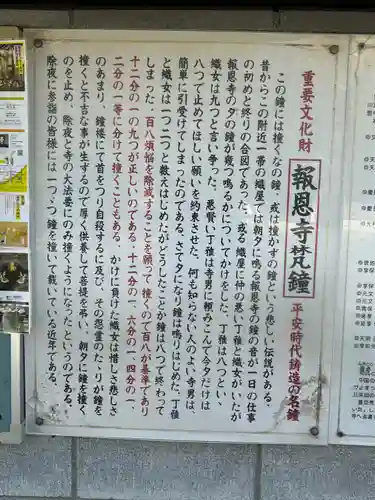 重要文化財
報恩寺梵鐘
平安時代鋳造の名鐘
この鐘には撞くなの鐘、或は撞かずの鐘という悲しい伝説がある。
昔からこの附近一帯の織屋では朝夕に鳴る報恩寺の鐘の音が一日の仕事
の初めと終りの合図であった。或る織屋に仲の悪い丁稚と織女がいたが
報恩寺の夕の鐘が幾つ鳴るかについてかけをした。丁稚は八つという
織女は九つと言い争った。悪賢い丁稚は寺男に頼みこんで今夕だけは
八つで止めてほしい願いを約束させた。何も知らない人のよい寺男は、
簡単に引受けてしまったのである。さて夕になり鐘は鳴りはじめた。丁稚
と織女は一つ二つと数えはじめたがどうしたことか鐘は八つで終わって
しまった。百八煩悩を除滅することを願って撞くので百八が基準であり
十二分の一の九つが正しいのである。十二分の一、六分の一、四分の一、
二分の一等に分けて撞くこともある。かけに負けた織女は惜しさ悲しさ
のあまり、鐘楼にて首をつり自殺するに及び、その怨霊のたゝりが鐘を
撞くと不吉な事が生ずるので厚く供養して菩提を弔い、朝夕に鐘を撞く
のを止め、除夜と寺の大法要にのみ撞くようになったというのである。
除夜に参詣の皆様には一つゞつ鐘を撞いて戴いている近年である。